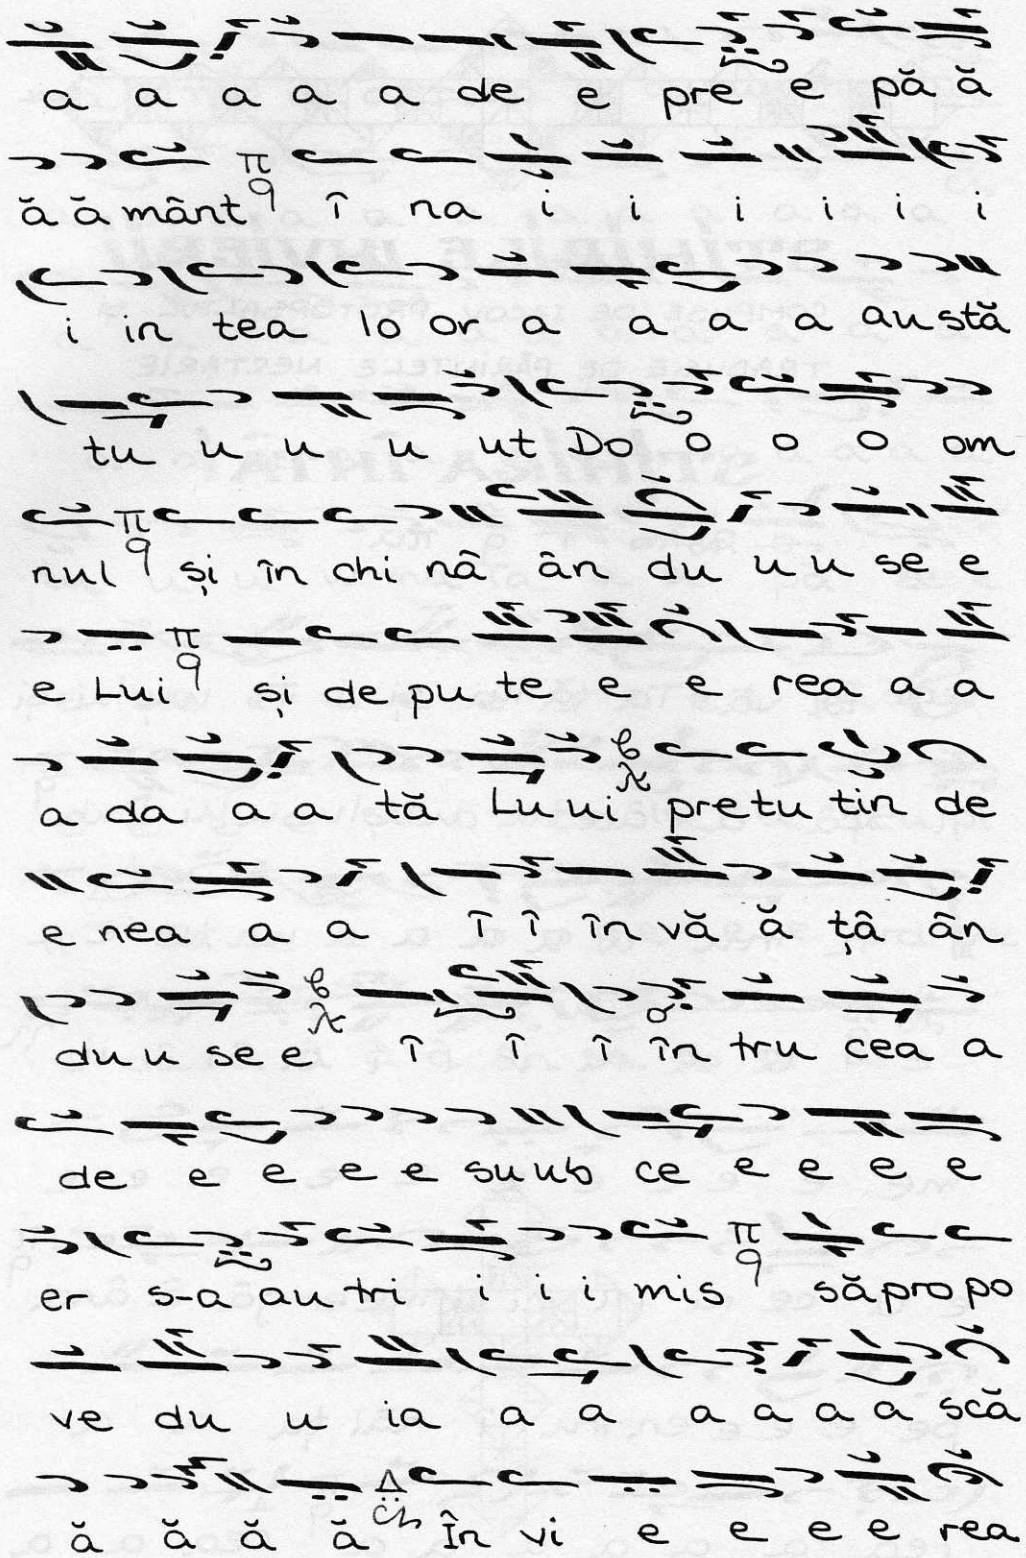 a a a a a de e pre e pă ă
ă ă mânt î na i i i i i i
i in tea lo or a a a a au stă
tu u u u ut Do o o o om
nul și în chi nâ ân du u u se e
e Lui și de pu te e e rea a a
a da a a tă Lu ui pre tu tin de
e nea a a î î în vă ă țâ ân
du u se e î î î în tru cea a
de e e e e su ub ce e e e e
er s-a au tri i i i mis să pro po
ve du u ia a a a a a a scă
ă ă ă ă În vi e e e e rea